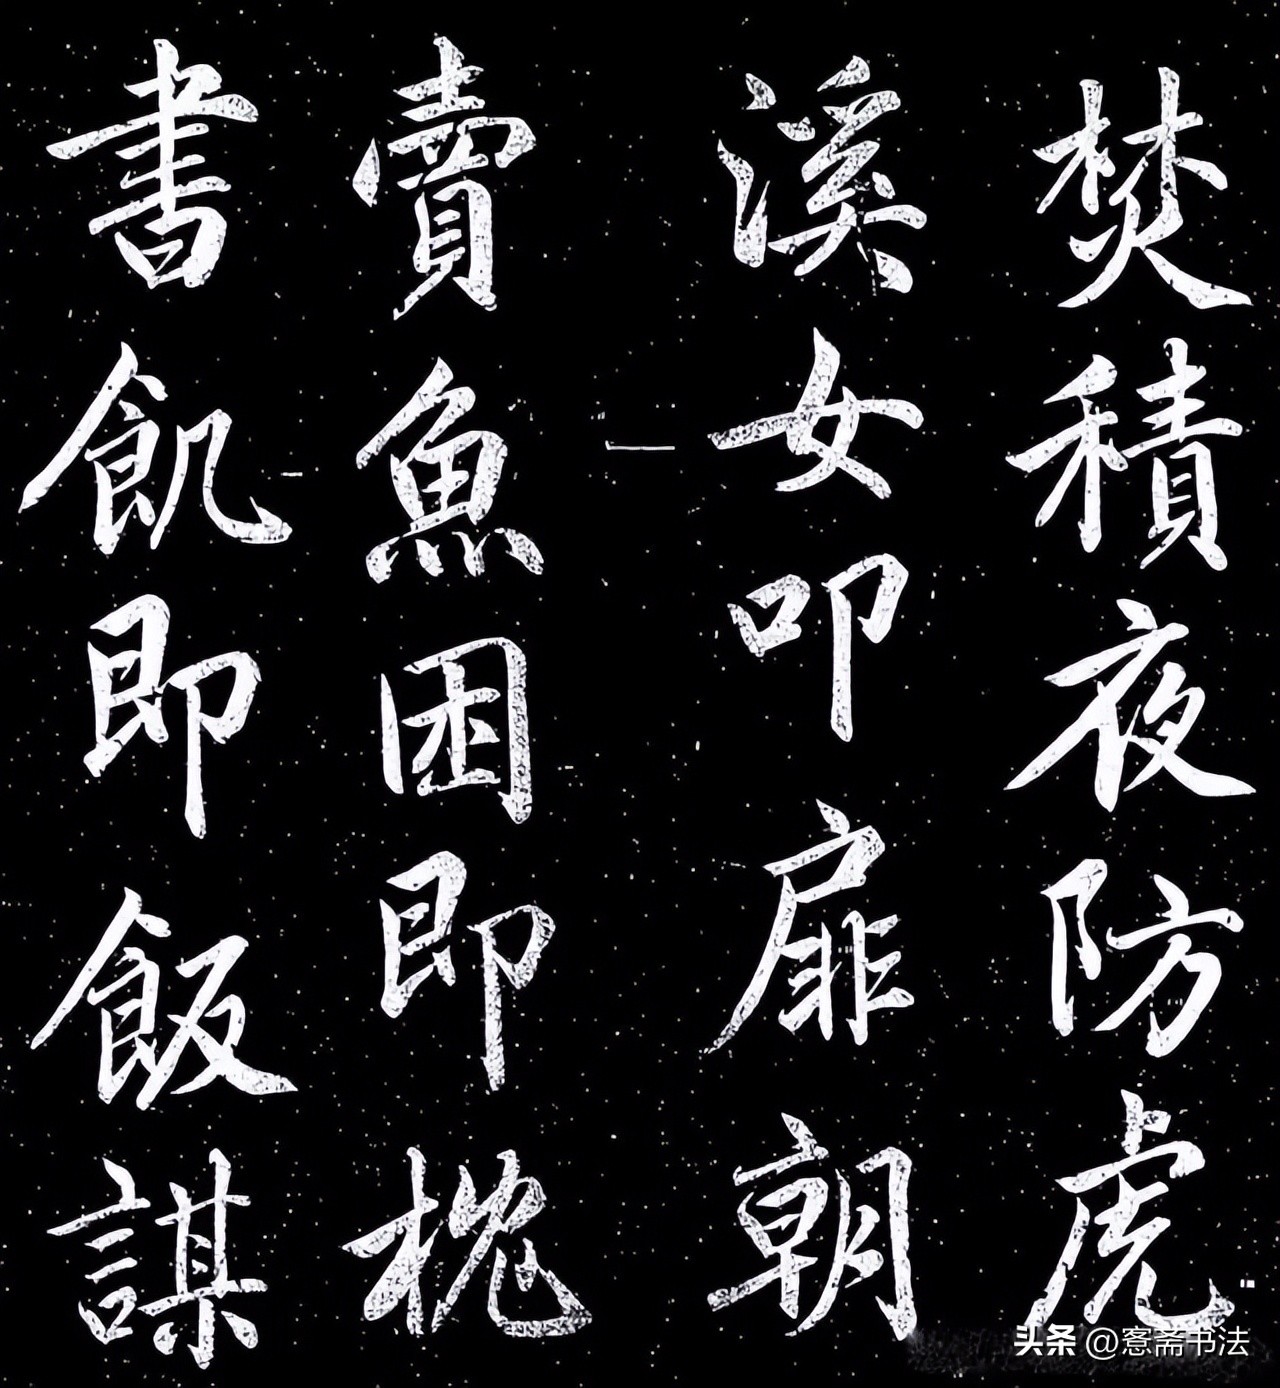 焚積夜防虎
溪女叩扉朝
賣魚困即枕
書飢即飯謀
头条@窓斋书法